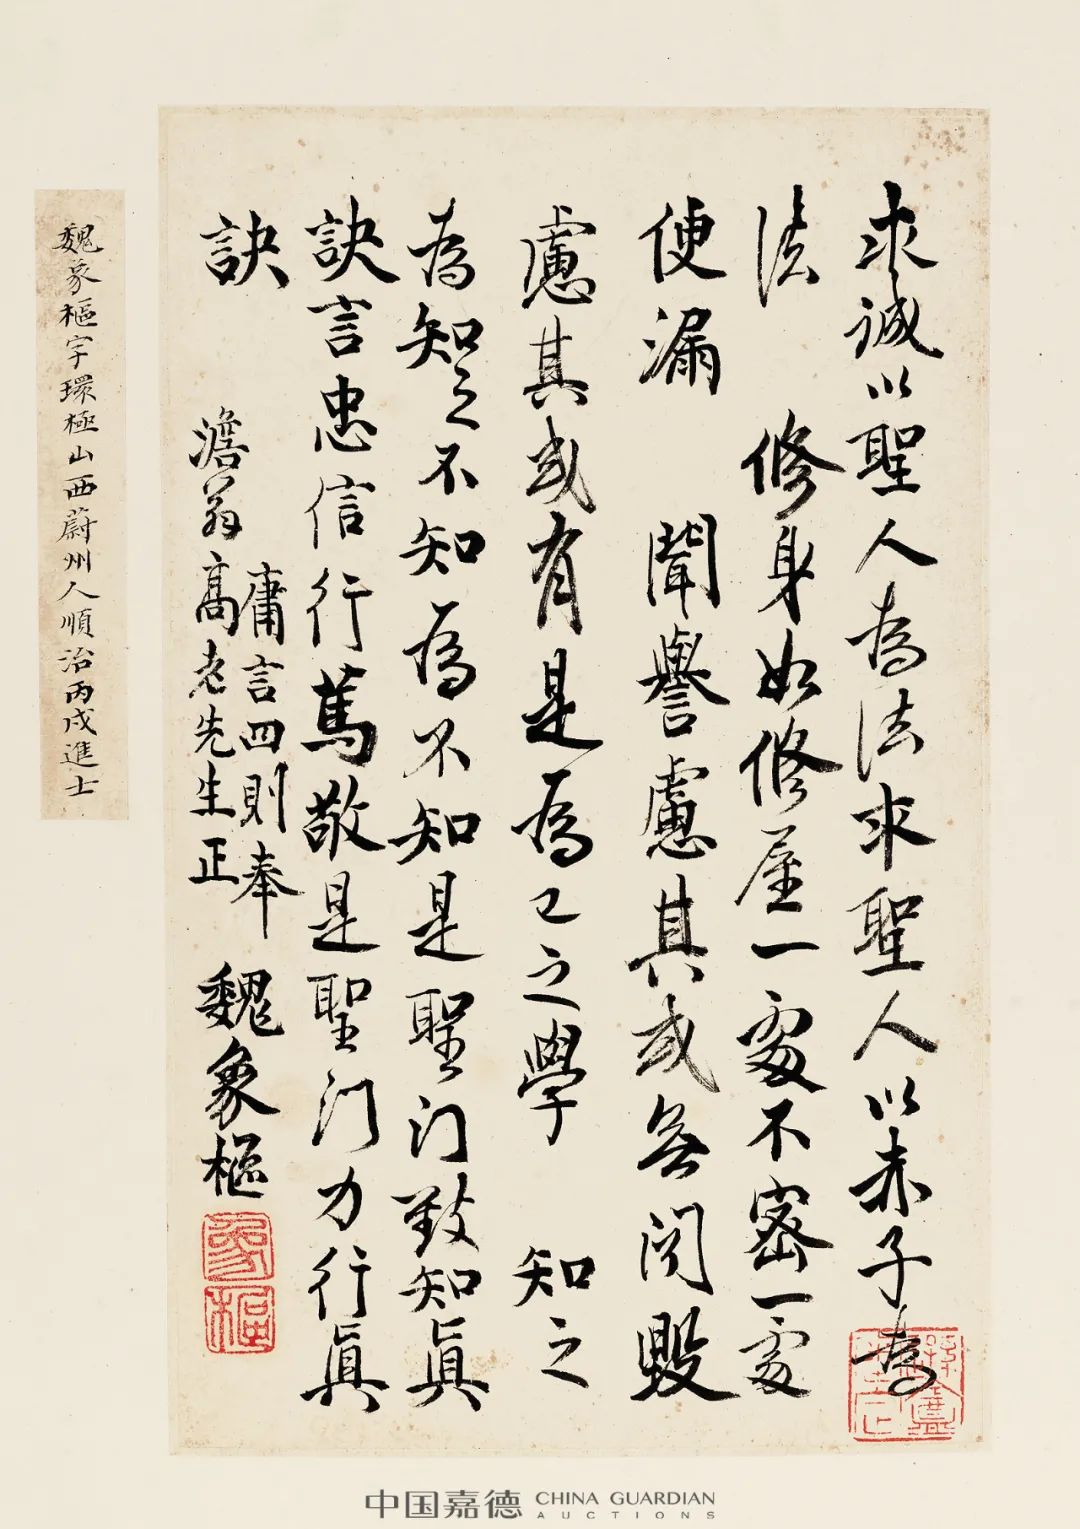 求誠以聖人為法求聖人以赤子為
法　修身如修屋一處不密一處
便漏　聞譽慮其或無聞毀
慮其或有是為己之學　知之
為知之不知為不知是聖门致知真
訣言忠信行篤敬是聖门力行真
訣
庸言四則奉
澹翁高老先生正
魏象樞
象樞
魏象樞字環極山西蔚州人順治丙戌進士
中国嘉德 CHINA GUARDIAN
AUCTIONS